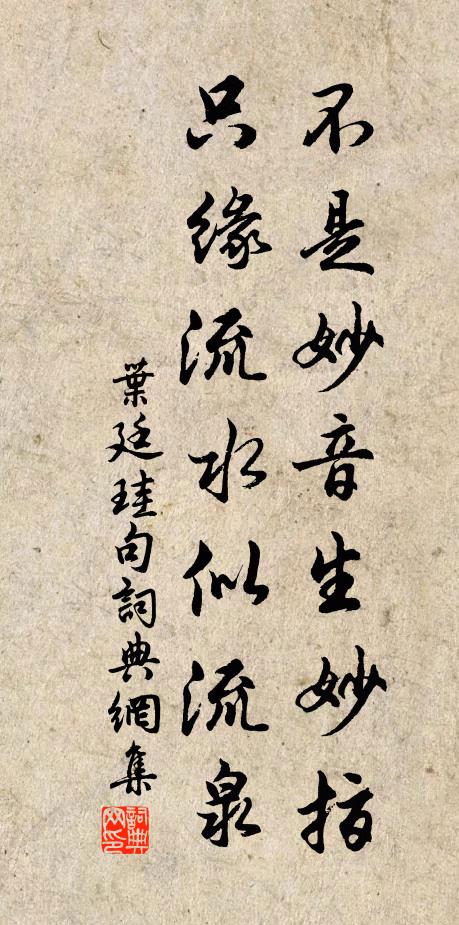 不是妙音生妙指
只緣流水似流泉
葉廷珪句詞典網集
詞典网印